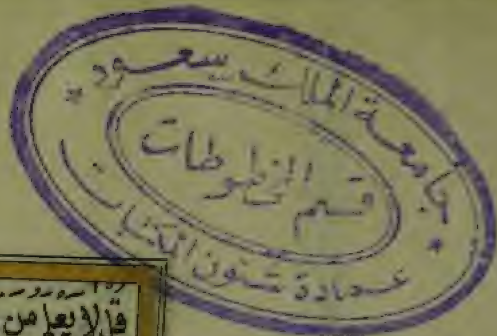 جامعة الملك سعود
قسم المخطوطات
عمادة شئون المكتبات
قل لا يعلم من